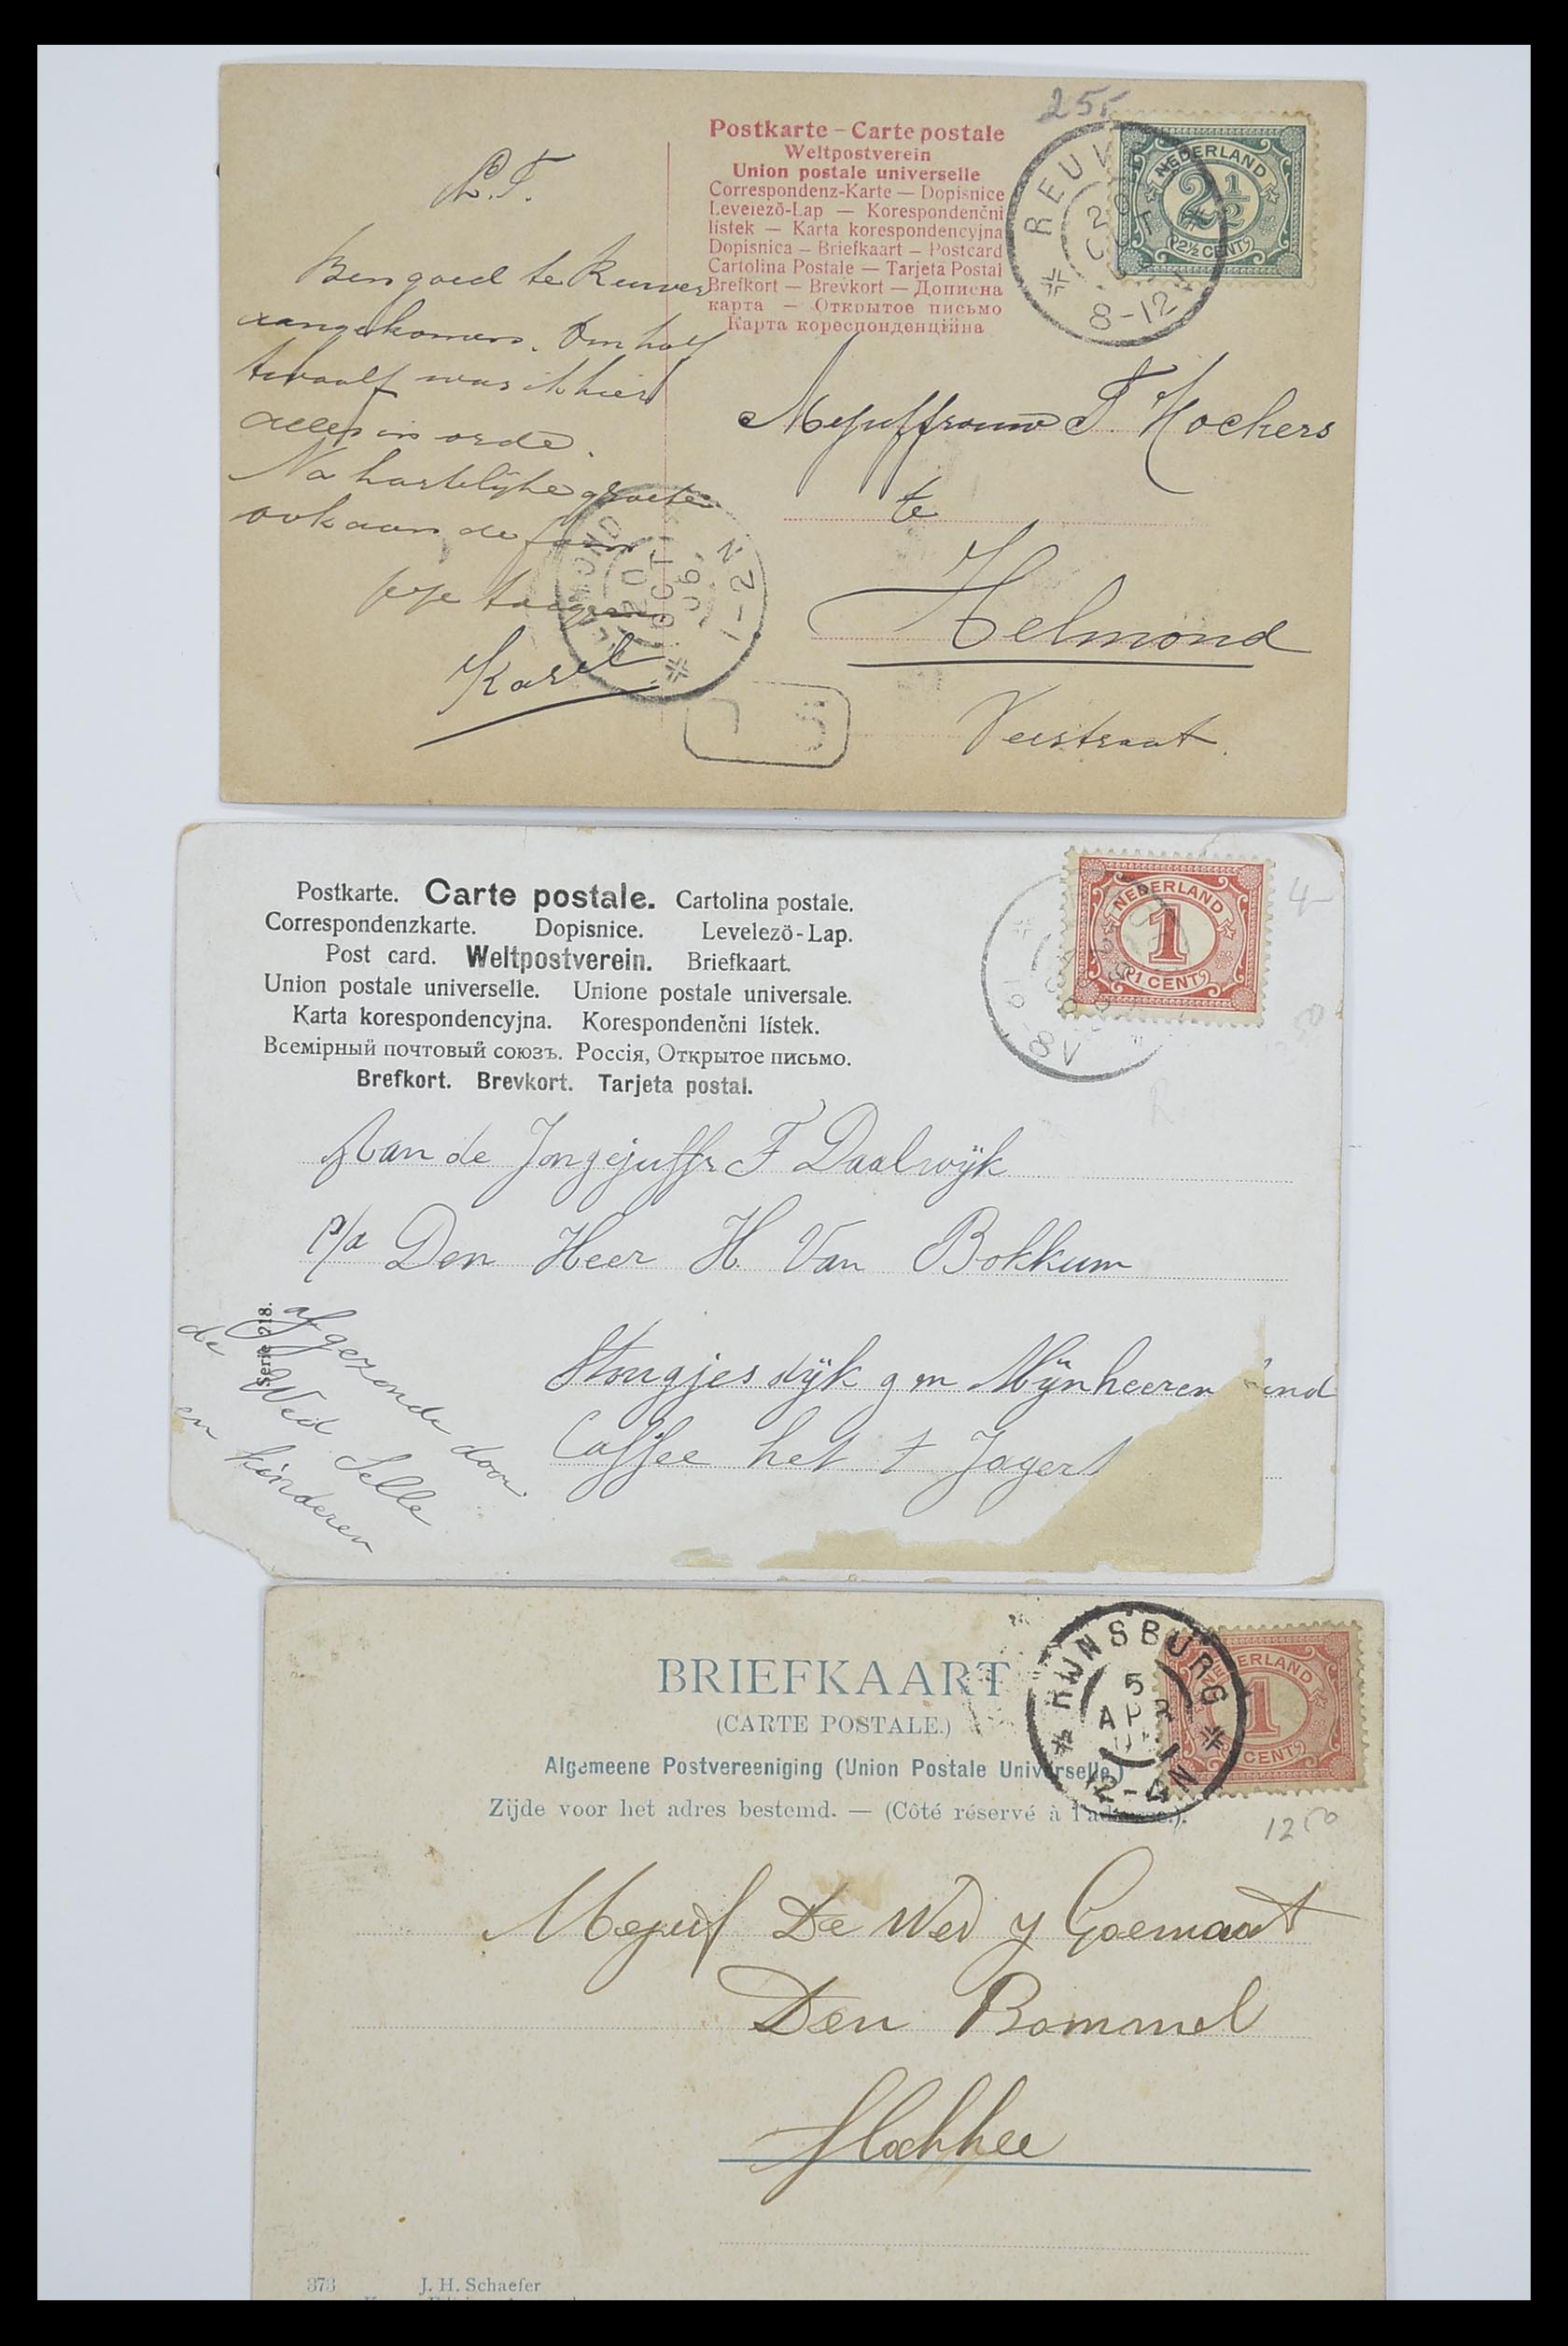 255
Postkarte – Carte postale
Weltpostverein
Union postale universelle
Correspondenz-Karte — Dopisnice
Levelező-Lap — Korespondenční
lístek — Karta korespondencyjna
Dopisnica – Briefkaart – Postcard
Cartolina Postale — Tarjeta Postal
Brefkort — Brevkort — Дописна
карта — Открытое письмо
Карта кореспонденційна
REUV
20
8-12
NEDERLAND
2½
2½ CENT
L.F.
Ben goed te Reuver
aangekomen. Om half
twaalf was ik hier
alles in orde.
Na hartelijke groeten
ook aan de
Karel
MOND
20
OCT
06
1-2 N
Mejuffrouw F. Hockers
te
Helmond
Veestraat.
Postkarte. Carte postale. Cartolina postale.
Correspondenzkarte. Dopisnice. Levelező-Lap.
Post card. Weltpostverein. Briefkaart.
Union postale universelle. Unione postale universale.
Karta korespondencyjna. Korespondenčni lístek.
Всемірный почтовый союзъ. Россія, Открытое письмо.
Brefkort. Brevkort. Tarjeta postal.
NEDERLAND
1
1 CENT
4-
8V
Aan de Jongejuffr F Daalwijk
p/a Den Heer H Van Bokkum
gen Mijnheeren
Coffee het t Jagers
Serie 218.
afgezonde door
de Wed Selle
en kinderen
BRIEFKAART
(CARTE POSTALE.)
Algemeene Postvereeniging (Union Postale Universelle)
Zijde voor het adres bestemd. — (Côté réservé à l'adresse.).
RIJNSBURG
5
APR
12-4N
NEDERLAND
1
CENT
1250
Mejuf De Wed J Goemaat
Den Bommel
Flakkee
373
J. H. Schaefer